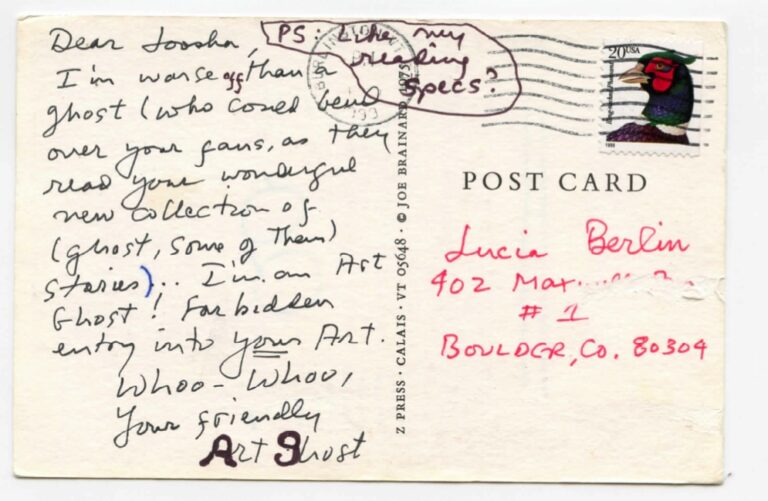 Dear Loosha,
I'm worse off than a
ghost (who could bend
over your fans, as they
read your wonderful
new collection of
(ghost, some of them)
stories).. I'm an Art
Ghost! Forbidden
entry into your Art.
Whoo-Whoo,
Your friendly
Art Ghost
PS: Like my
reading
specs?
Z PRESS · CALAIS · VT 05648 · © JOE BRAINARD (1975)
20USA
Ring-necked Pheasant
1998
POST CARD
Lucia Berlin
402
# 1
BOULDER, CO. 80304